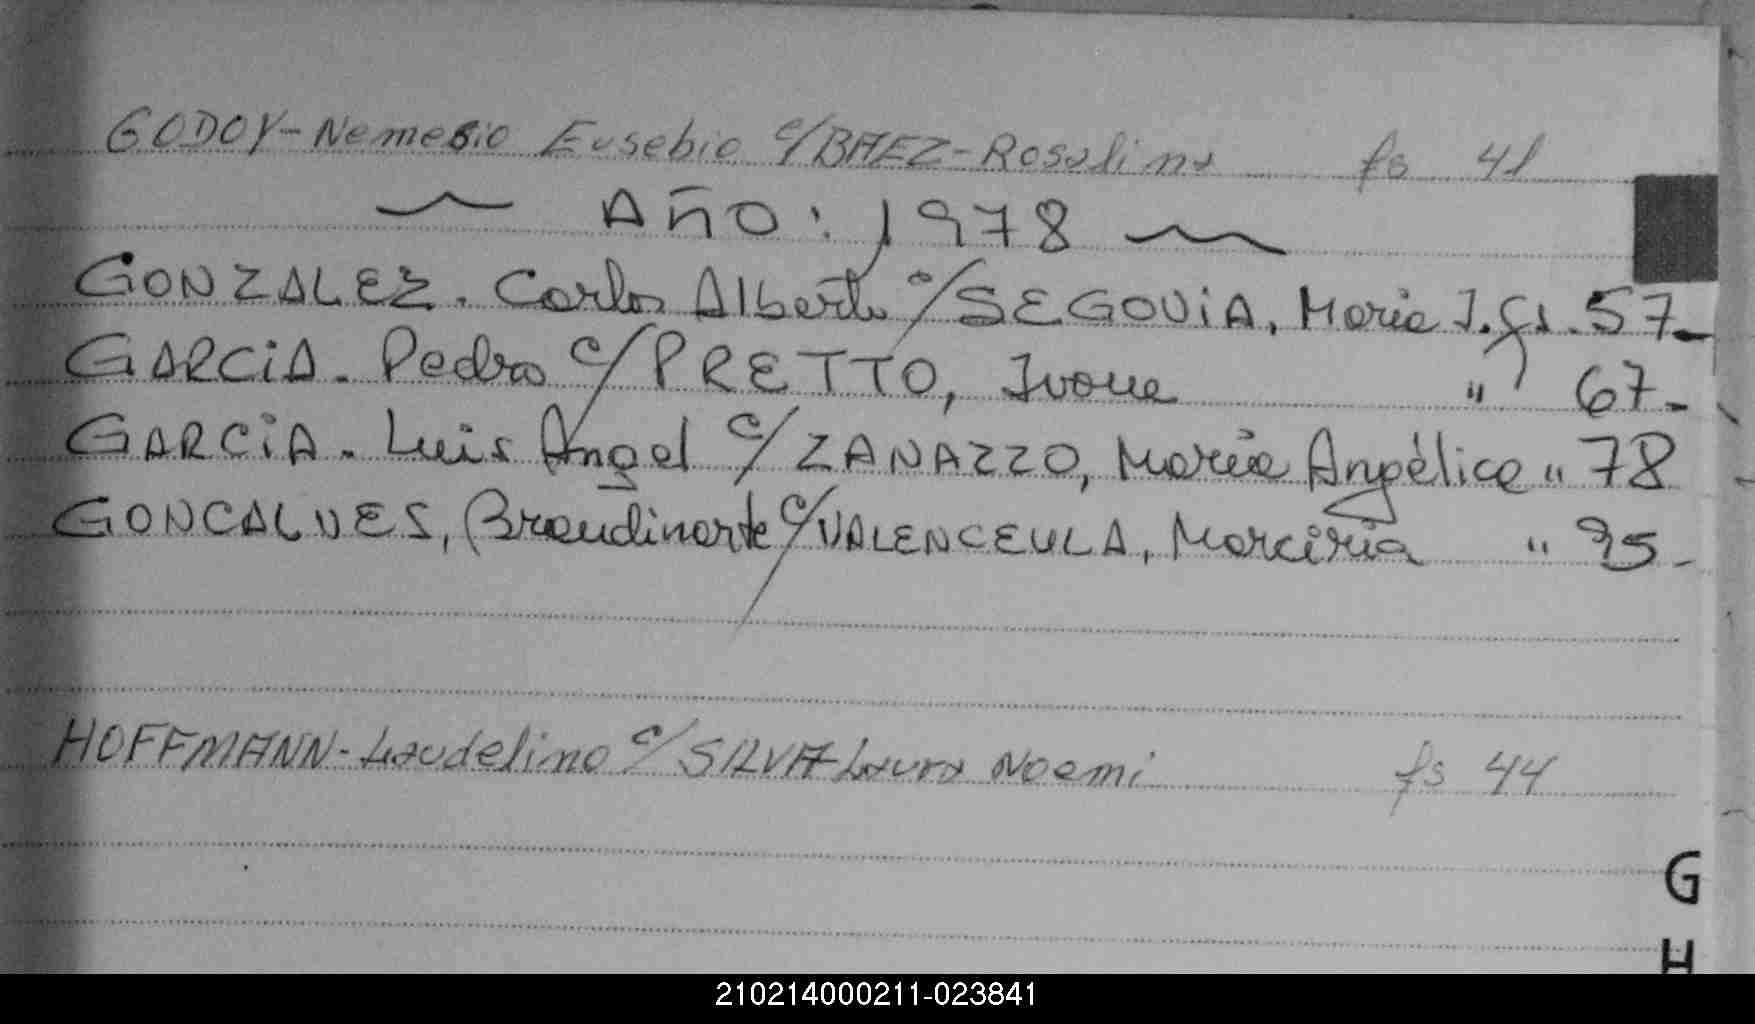 GODOY-Nemesio Eusebio c/BAEZ-Rosalina fs 41
~ Año: 1978 ~
GONZALEZ. Carlos Alberto c/SEGOViA, Maria I. fs. 57-
GARCiA. Pedro c/PRETTO, Ivone " 67-
GARCiA. Luis Angel c/ZANAZZO, María Angélica " 78
GONCALVES, Braudinarte c/VALENCEULA, Marciria " 95-
HOFFMANN-Laudelino c/SILVA-Laura Noemi fs 44
G
H
210214000211-023841